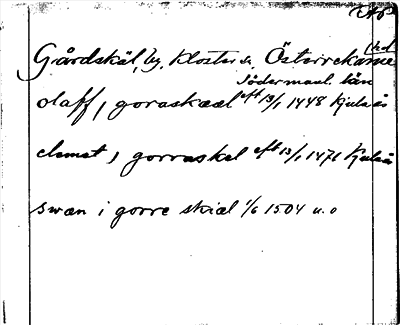 Gårdskäl, by, Kloster s:n, Österrekarne hd
Södermanl. län
olaff, goraskæl eft 13/1 1448 Kjula ås
clemet, gorraskel eft 13/1 1471 Kjula ås
swæn i gorre skiæl 1/6 1504 u.o